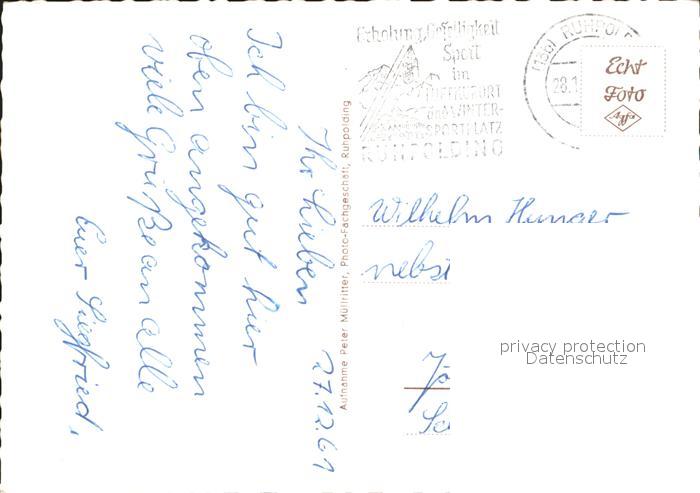 Ihr Lieben 27.12.61
Ich bin gut hier
oben angekommen
viele Grüße an alle
Euer Siegfried.
Aufnahme Peter Müllritter, Photo-Fachgeschäft, Ruhpolding
Erholung, Geselligkeit
Sport
im
LUFTKURORT
UND WINTER-
SPORTPLATZ
RUHPOLDING
(13b) RUHPOL
28.1
Echt
Foto
Agfa
Wilhelm
nebst
privacy protection
Datenschutz